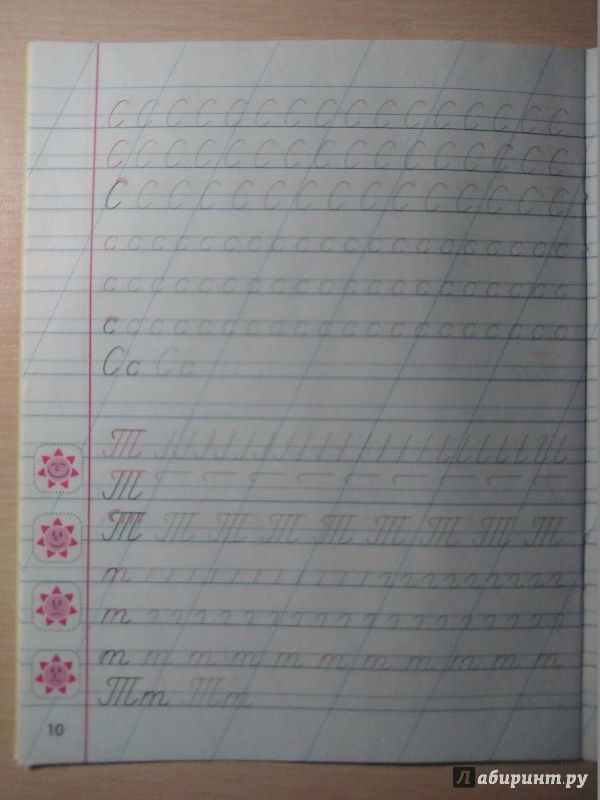 С С С С С С С С С С С С С С С С
С С С С С С С С С С С С С С С С
С С С С С С С С С С С С С С С
с с с с с с с с с с с с с с с с с с с с
с с с с с с с с с с с с с с с с с с с с
с с с с с с с с с с с с с с с с с с с с
Сс Сс
Т
Т
Т Т Т Т Т Т Т Т Т
т
т
т т т т т т т т т т т
Тт Тт
10
Лабиринт.ру